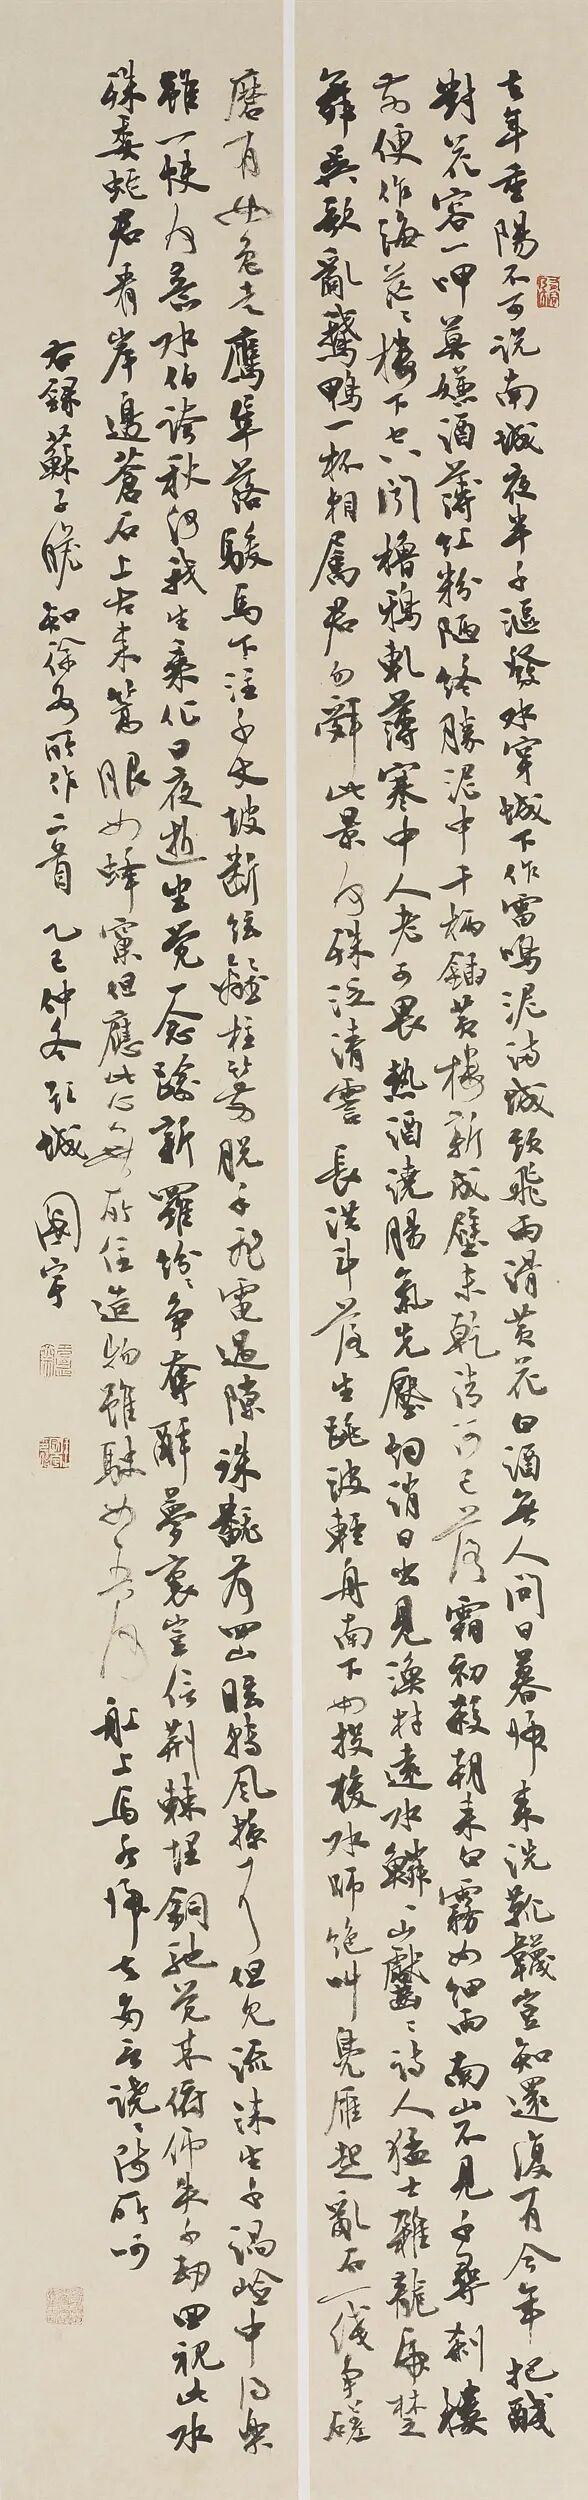 去年重陽不可說南城夜半千漚發水穿城下作雷鳴泥滿城頭飛雨滑黃花白酒無人問日暮歸來洗靴韈豈知還復有今年把醆
對花容一呷莫嫌酒薄紅粉陋終勝泥中千柄鍤黃樓新成壁未乾清河已落霜初殺朝來白霧如細雨南山不見千尋剎樓
前便作海茫〻樓下空聞櫓鴉軋薄寒中人老可畏熱酒澆腸氣先壓煙消日出見漁村遠水鱗〻山齾〻詩人猛士雜龍虎楚
舞吳歌亂鵝鴨一杯相屬君勿辭此景何殊泛清霅 長洪斗落生跳波輕舟南下如投梭水師絕叫鳧雁起亂石一線爭磋
磨有如兔走鷹隼落駿馬下注千丈坡斷弦離柱箭脫手飛電過隙珠翻荷四山眩轉風掠耳但見流沫生千渦嶮中得樂
雖一快何意水伯誇秋河我生乘化日夜逝坐覺一念逾新羅紛〻爭奪醉夢裏豈信荊棘埋銅駝覺來俯仰失千劫回視此水
殊委蛇君看岸邊蒼石上古來篙眼如蜂窠但應此心無所住造物雖駛如吾何船上馬各歸去多言譊〻師所呵
右錄蘇子瞻知徐州所作二首 乙巳仲冬 城 國宇